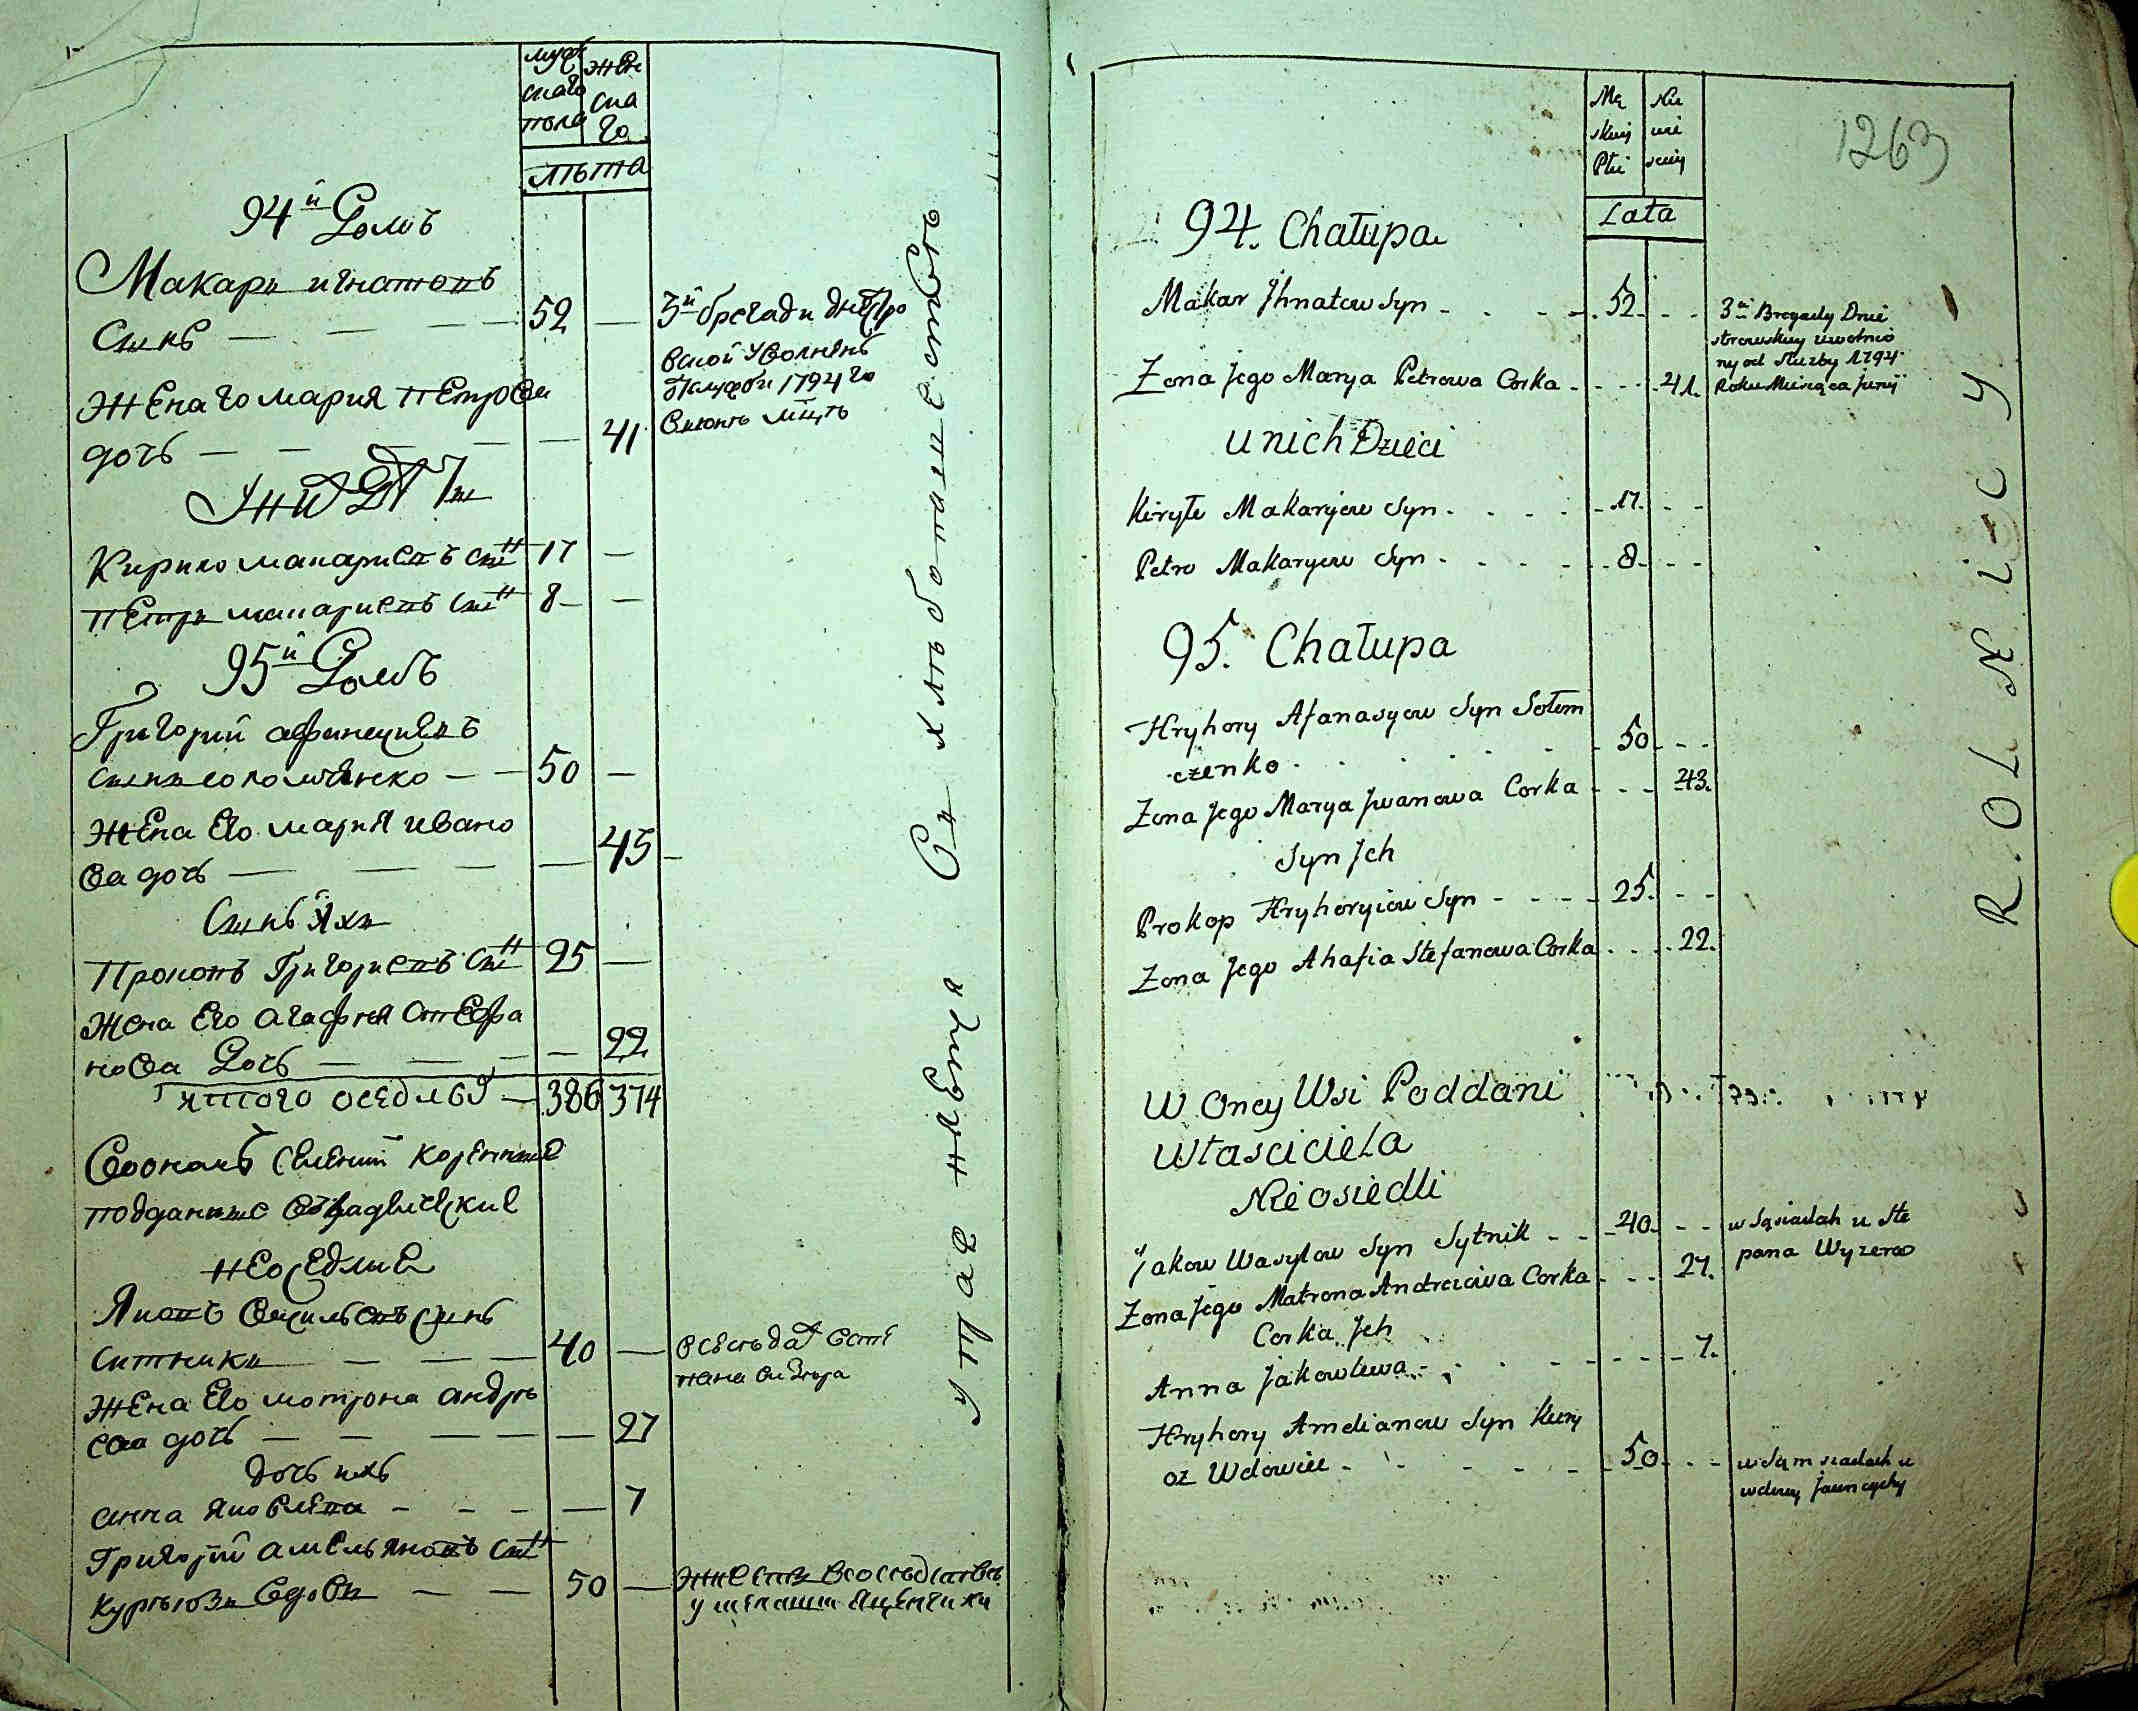 мужскаго пола
женскаго
лѣта
94й Домъ
Макаръ игнатовъ
Сынъ — — — 52 —
3й брегади днѣстро
вской уволнѣнъ
Жена го мария пЕтрова
дочь — — — 41
У ниХ ДѣТи
Кирило макариевъ сынъ 17 —
пЕтръ макариевъ сынъ 8 —
95й Домъ
Григорий афанасиевъ
сынъ соломченко — — 50 —
жЕна Его мария ивано
ва дочь — — — 45 —
Сынъ Ихъ
Прокопъ Григориевъ сынъ 25 —
Жена Его агафия стЕфа
нова Дочь — — — 22
итого осЕдлых — 386 374
подданные
нЕосЕдлые
Яковъ Василевъ сынъ
ситникъ — — — 40 —
жЕна Его мотрона андрѣ
ева дочь — — — 27
дочь ихъ
анна яковлева — — — 7
Григорий амельяновъ сынъ
вдовъ — — 50 —
Mę
skiey
Płci
Nie
wie
sciey
Lata
1263
94. Chałupa
Makar Jhnatow Syn - - - - 52 - -
3ii Brygady Dnie
strowskiey uwolnio
ny od służby 1794
Roku Miesiąca Junij
Zona Jego Marya Petrowa Corka - - - 41.
u nich Dzieci
Kiryło Makaryew Syn - - - - 17 - -
Petro Makaryew Syn - - - - 8 - -
95. Chałupa
Hryhory Afanasyew Syn Sołom
czenko - - - - 50 - -
Zona Jego Marya Jwanowa Corka - - - 43.
Syn Jch
Prokop Hryhoryiow Syn - - - - 25. - -
Zona Jego Ahafia Stefanowa Corka - - - 22.
W Oney Wsi Poddani
Własciciela
Nieosiedli
Jakow Wasylow Syn Sytnik - - 40 - -
w sąsiadach u Ste
pana
Zona Jego Matrona Andreiowa Corka - - - 27.
Corka Jch
Anna Jakowlewa - - - - - - 7.
Hryhory Amelianow Syn Kury
oz Wdowiec - - - - - 50 - -
u
wdowy
R O L N I C Y